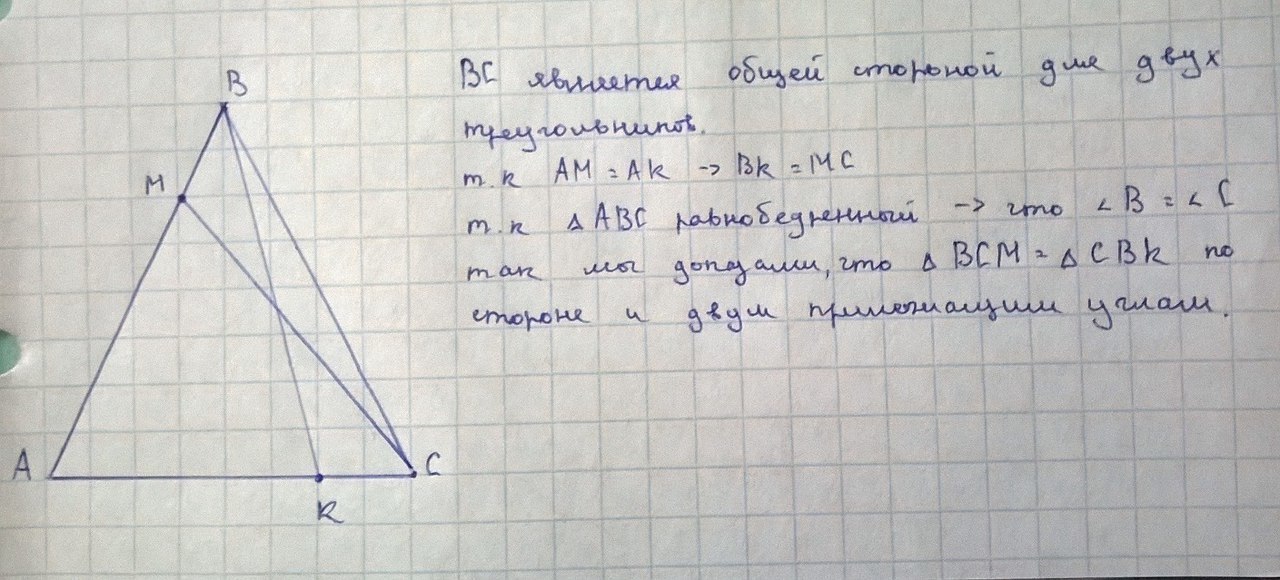 B
M
A
K
C
BC является общей стороной для двух
треугольников.
т.к AM = AK -> BK = MC
т.к △ ABC равнобедренный -> что ∠ B = ∠ C
так мы доказали, что △ BCM = △ CBK по
стороне и двум прилежащим углам.